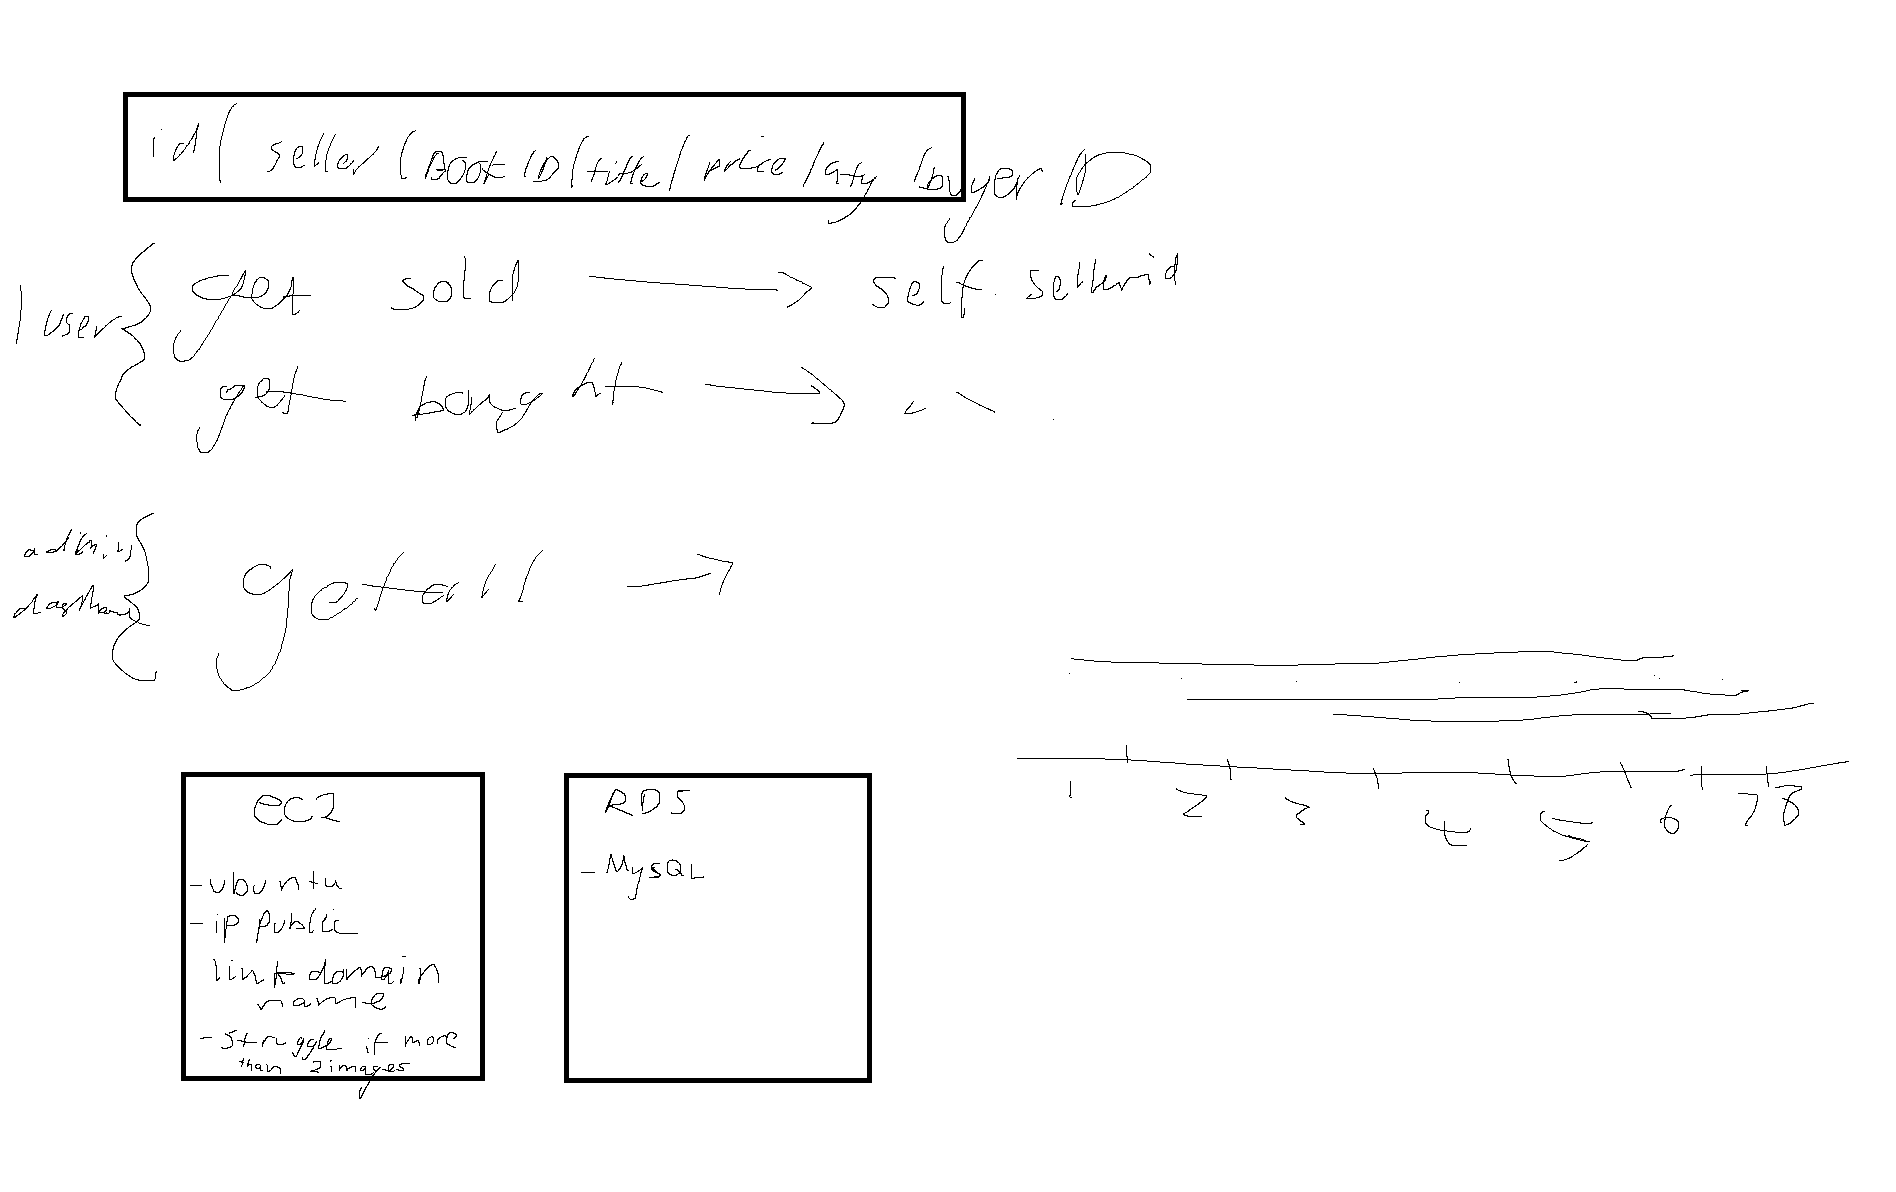 id / seller / BOOK ID / title / price / qty / buyer ID
1 user
get sold → self. sellerid
get bought →
admin
getall →
1 2 3 4 5 6 7 8
EC2
- ubuntu
- ip public
link domain
name
- struggle if more
than 2 images
RDS
- MySQL